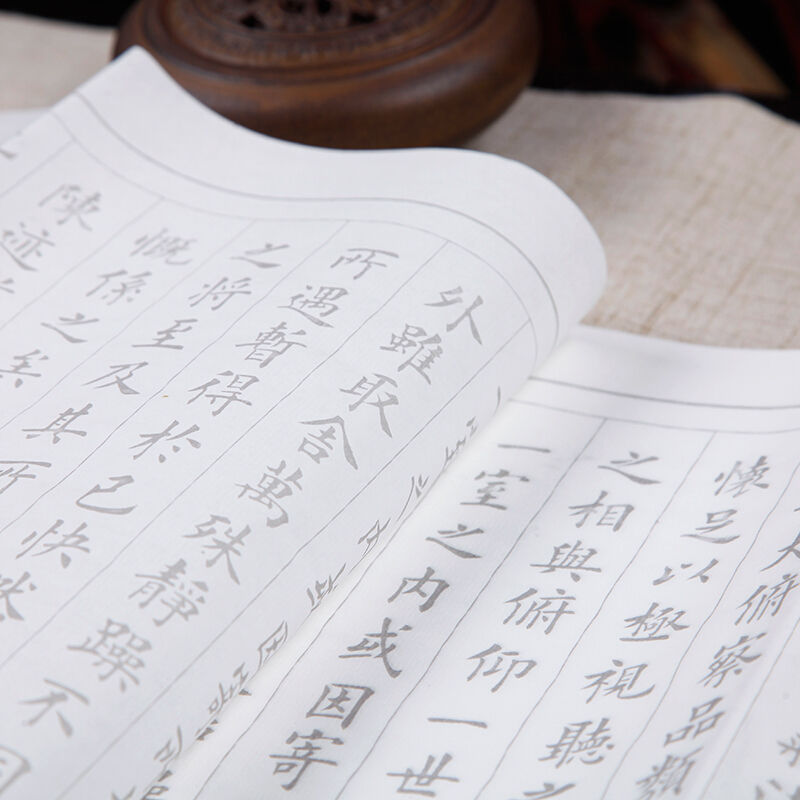 大俯察品類
懷足以極視聽之
之相與俯仰一世
一室之內或因寄
外雖取舍萬殊靜躁不
所遇暫得於己快然
之將至及其所
慨係之矣
陳迹